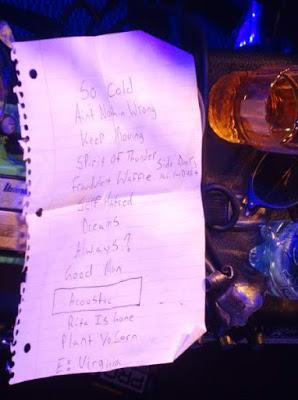 So Cold
Aint Nothin Wrong
Keep Moving
Spirit Of Thunder
Fraudulent Waffle
Self Hatred
Dreams
Always?
Good Man
Acoustic
Rita Is Gone
Plant Yo Corn
E: Virginia